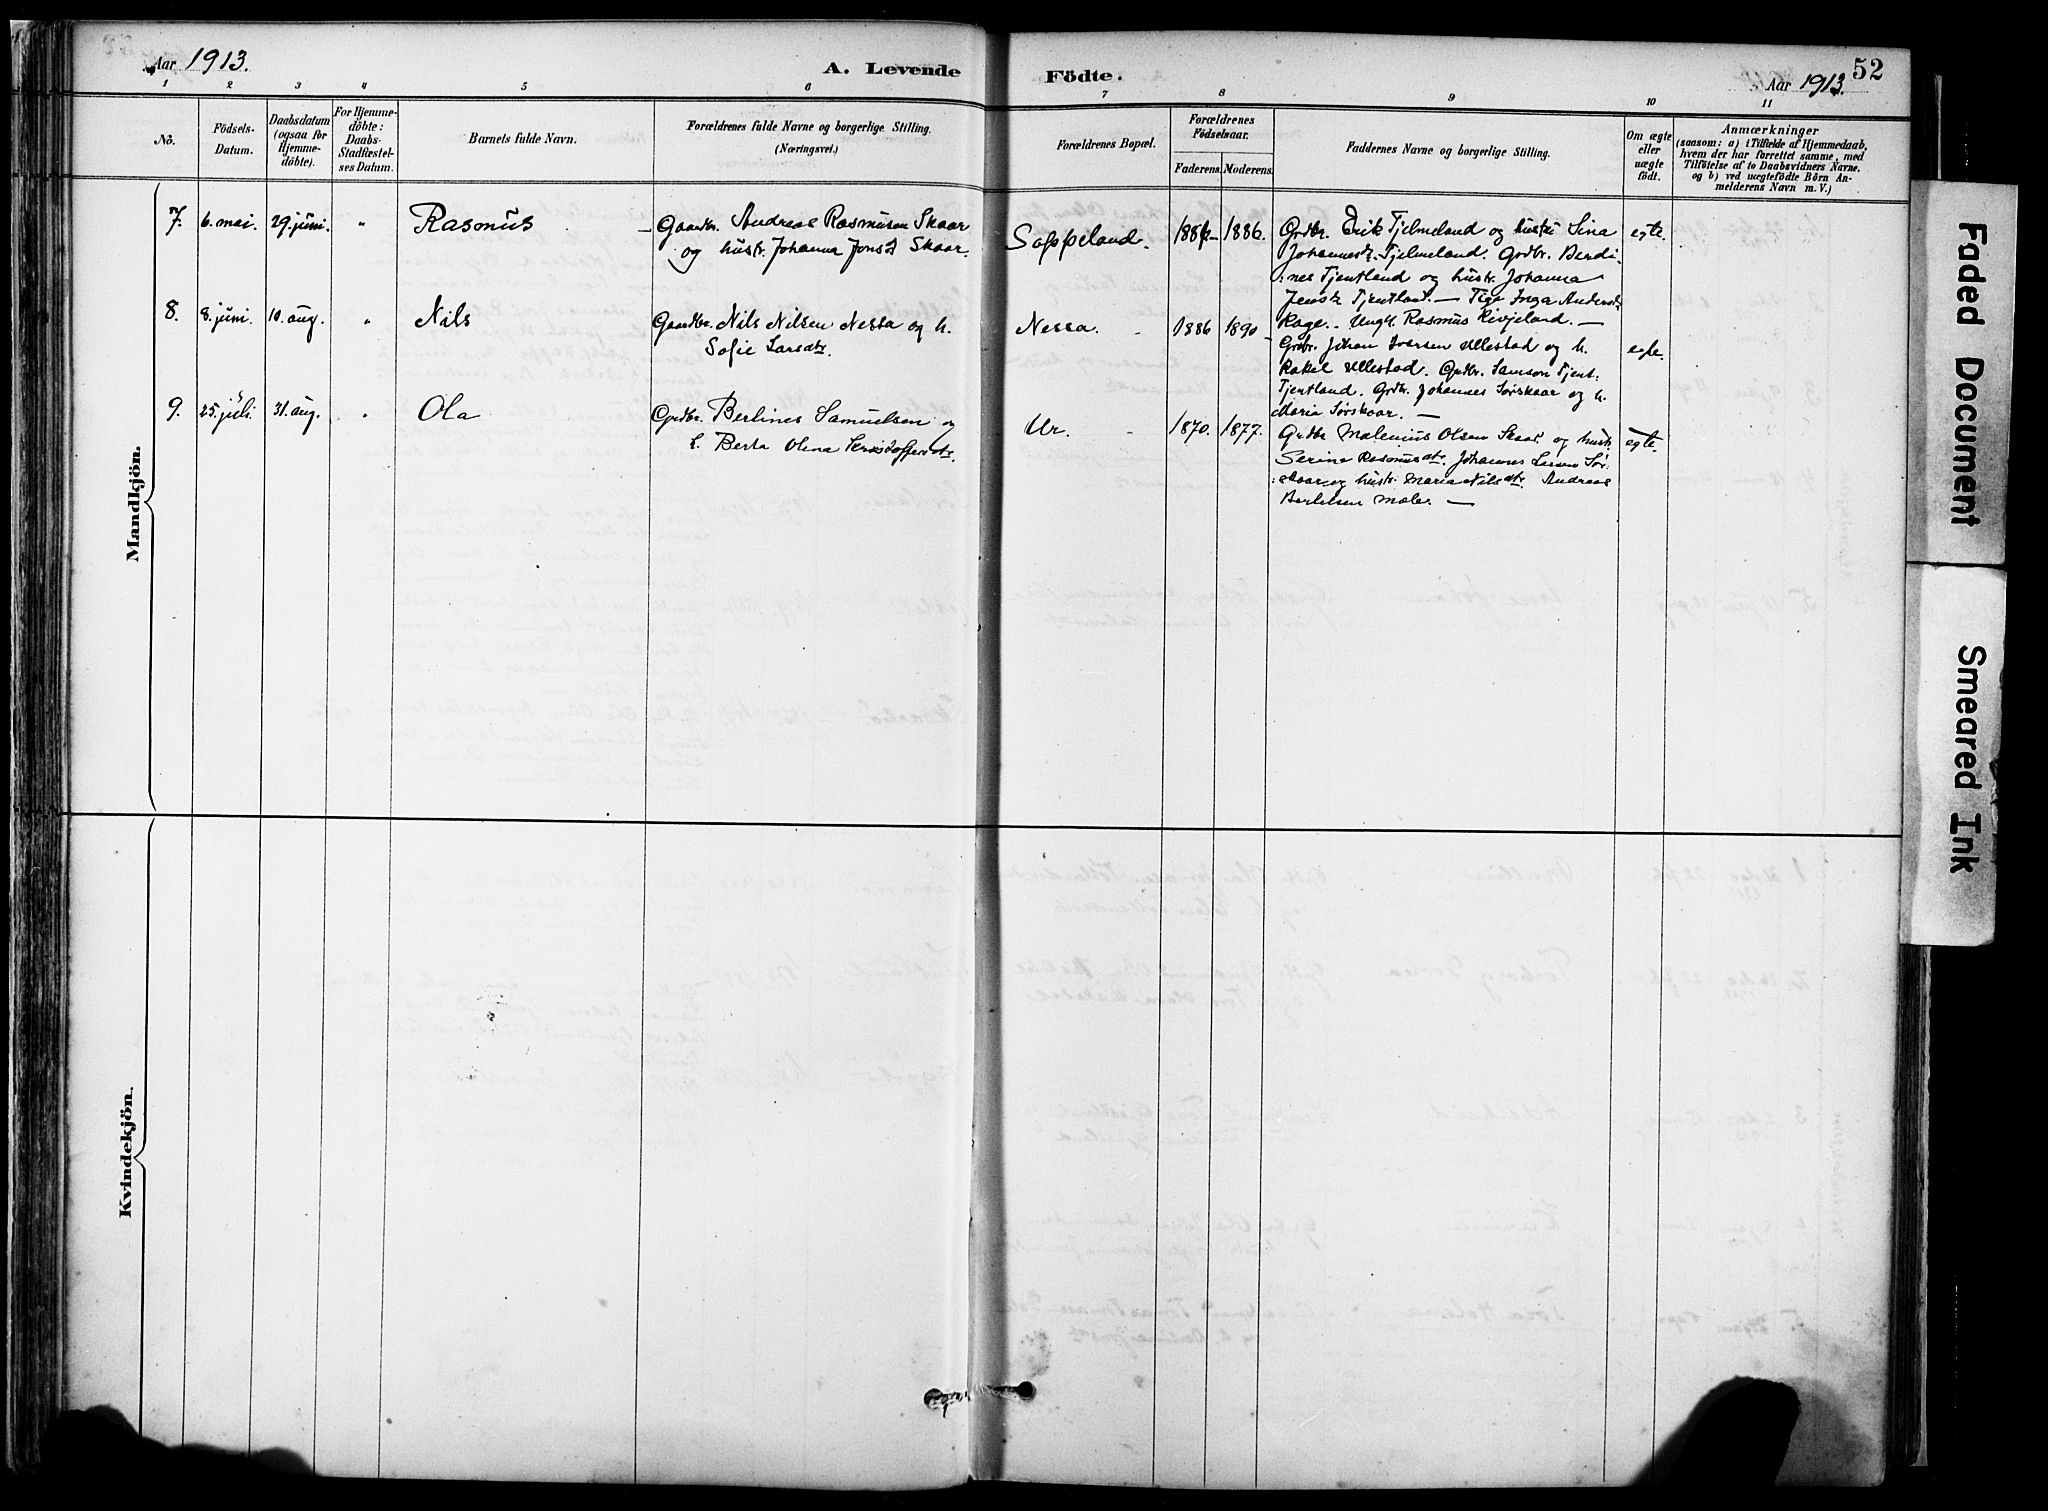 Aar 1913.
A. Levende
Födte.
Aar 1913.
52
1 2 3 4 5 6 7 8 9 10 11
No.
Födsels-
Datum.
Daabsdatum
(ogsaa for
Hjemme-
döbte).
For Hjemme-
döbte:
Daabs-
Stadfæstel-
ses Datum.
Barnets fulde Navn.
Forældrenes fulde Navne og borgerlige Stilling.
(Næringsvei.)
Forældrenes Bopæl.
Forældrenes
Födselsaar.
Faderens.
Moderens.
Faddernes Navne og borgerlige Stilling.
Om ægte
eller
uægte
født.
Anmærkninger
(saasom: a) i Tilfælde af Hjemmedaab,
hvem der har forrettet samme, med
Tilføielse af to Daabsvidners Navne,
og b) ved uægtefödte Börn An-
melderens Navn m. V.)
Mandkjön.
7. 6. mai. 29. juni. " Rasmus
Gaardbr. Andreas Rasmusen Skaar
og hustr. Johanna Jonsd. Skaar.
Soppeland. 1886.
Grdbr. Erik Tjelmeland og hustr. Sina
Johannesdtr. Tjelmeland. Grdbr. Berdi-
:nes Tjentland og hustr. Johanna
Jensdtr. Tjentland. — Inga
Rage. Ungk. Rasmus —
egte.
8. 8. juni. 10. aug. " Nils
Gaardbr. Nils Nilsen Nessa og h.
Sofie Larsdtr.
Nessa. 1886 1890
Grdbr. Johan Iversen Ullestad og h.
Rakel Ullestad. Grdbr. Samson Tjent:
Tjentland. Grdbr. Johannes Sörskaar og h.
Maria Sörskaar. —
egte.
9. 25. juli. 31. aug. " Ola
Grdbr. Berlines Samuelsen og
h. Berta Olena Kristoffersdtr.
Ur. 1870. 1877.
Grdbr. Malenius Olsen Skaar og hustr.
Serine Rasmusdtr. Johannes Larsen Sör-
:skaar og hustr. Maria Nilsdtr. Andreas
Bertelsen Mæle. —
egte.
Kvindekjön.
Faded Document
Smeared Ink